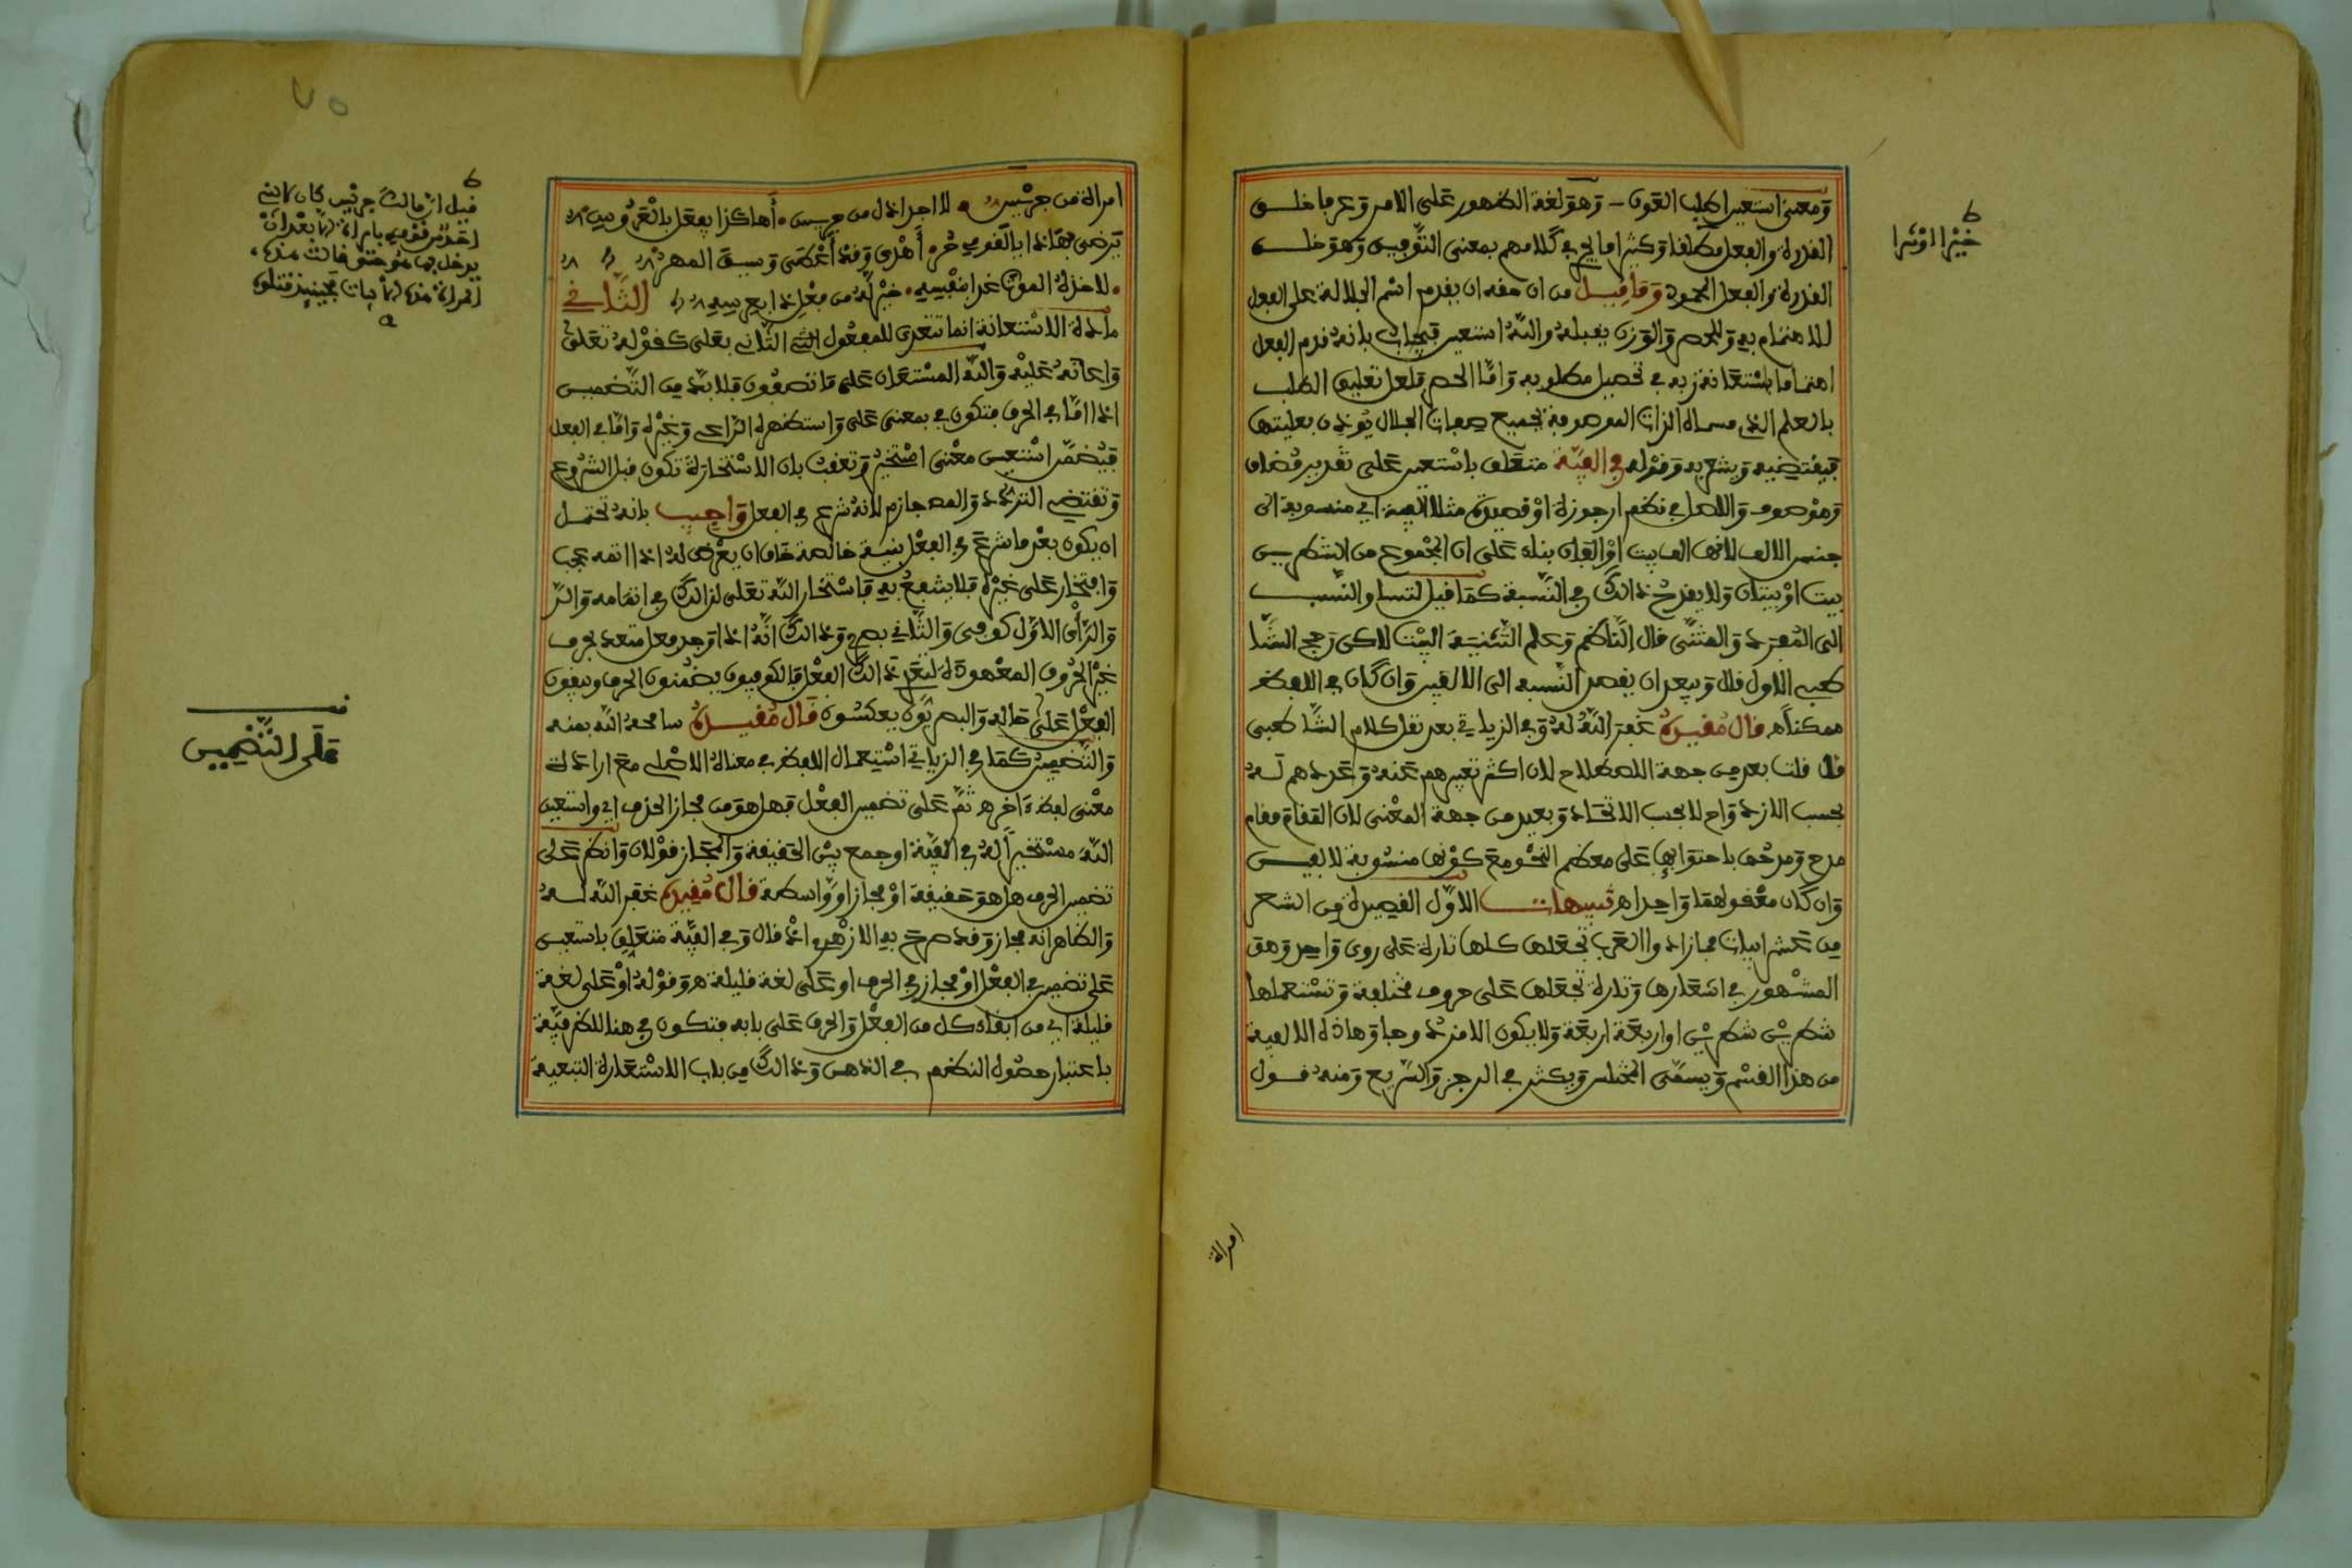 ومعنى استعين اطلب العون وهو لغة الظهور على الامر وعرفا خلق
القدرة والفعل مطلقا وكثيرا ما يجي في كلامهم بمعنى التوفيق وهو خلق
القدرة والفعل المحمود وما قيل من ان حقه ان يقدم اسم الجلالة على الفعل
للاهتمام به وللحصر والوزن يقبله والله استعين فيجاب بانه قدم الفعل
اهتماما باستعانة ربه في تحصيل مطلوبه واما الحصر فلعل تعليق الطلب
بالعلم الذي مسماه الذات الموصوفة بجميع صفات الجلال يوذن بعليتها
فيقتضيه ويشعر به وقوله في الفية متعلق باستعين على تقدير مضاف
وموصوف والاصل في نظم ارجوزة او قصيدة مثلا الفية اي منسوبة الى
جنس الالف لانها الف بيت او الفان بناء على ان المجموع من الشطرين
بيت او بيتان ولا يقدح ذالك في النسبة كما قيل لتساو النسب
الى المفرد والمثنى قال الناظم وعلم التثنية البت لاكن رجح الشا
طبي الاول قال ويبعد ان يقصد النسبه الى الالفين وان كان في اللفظ
ممكنا اه قال مقيده غفر الله له وفي الزياتي بعد نقل كلام الشاطبي
قال قلت بعد من جهة الاصطلاح لان اكثر تعبيرهم عنه وعددهم له
بحسب الازدواج لا بحسب الاتحاد وبعيد من جهة المعنى لان المقام مقام
مدح ومدحها باحتوايها على معظم النحو مع كونها منسوبة لالفين
وان كان معقولهما واحدا اه تنبيهات الاول القصيدة من الشعر
من عشر ابيات فما زاد والعرب تجعلها كلها تارة على روي واحد وهو
المشهور في اشعارها وتارة تجعلها على حروف مختلفة وتستعملها
شطرين شطرين او اربعة اربعة ولا يكون الا مزدوجا وهاذه الالفية
من هذا القسم ويسمى المختلس ويكثر في الرجز والسريع ومنه قول
خيرا اوشرا
امراة
امراة من جديس لا احد اذل من جديس أهاكذا يفعل بالعروس
يرضى بهاذا يا لقومي حر أهدى وقد أعطى وسيق المهر
لاخذه الموت كذا بنفسه خير له من فعل ذا بعرسه الثاني
مادة الاستعانة انما تتعدى للمفعول الثاني بعلى كقوله تعلى
واعانه عليه والله المستعان على ما تصفون فلا بد من التضمين
اذا اما في الحرف فتكون في بمعنى على واستظهره الراعي وغيره واما في الفعل
فيضمن استعين معنى استخير وتعقب بان الاستخارة تكون قبل الشروع
وتقتضي التردد والمص جازم لانه شرع في الفعل واجيب بانه تحتمل
ان يكون بعد ما شرع في الفعل بنية خالصة خاف ان يعرض له اذا اتمه عجب
وافتخار على غيره فلا ينتفع به فاستخار الله تعلى لذالك في اتمامه والر
والرأي الاول كوفي والثاني بصري وذالك انه اذا وجد فعل متعد بحرف
غير الحروف المعهودة لتعدي ذالك الفعل فالكوفيون يضمنون الحرف ويبقون
الفعل على حاله والبصريون يعكسون قال مقيده سامحه الله بمنه
والتضمين كما في الزياتي استعمال اللفظ في معناه الاصلي مع ارادة
معنى لفظ ءاخر اه ثم على تضمين الفعل فهل هو من مجاز الحذف اي واستعين
الله مستخيرا له في الفية او جمع بين الحقيقة والمجاز قولان وانظر على
تضمين الحرف هل هو حقيقة او مجاز او واسطة قال مقيده غفر الله له
والظاهر انه مجاز وقد صرح به الازهري اذ قال وفي الفية متعلق باستعين
على تضمين في الفعل او مجاز في الحرف او على لغة قليلة اه وقوله او على لغة
قليلة اي من ابقاء كل من الفعل والحرف على بابه فتكون في هنا للظرفية
باعتبار حصول النظم في الذهن وذالك من باب الاستعارة التبعية
قيل ان مالك جديس كان لا يبني
احد من قومه بامراة الا بعد ان
يدخل بها
قف
على التضمين
٧٥